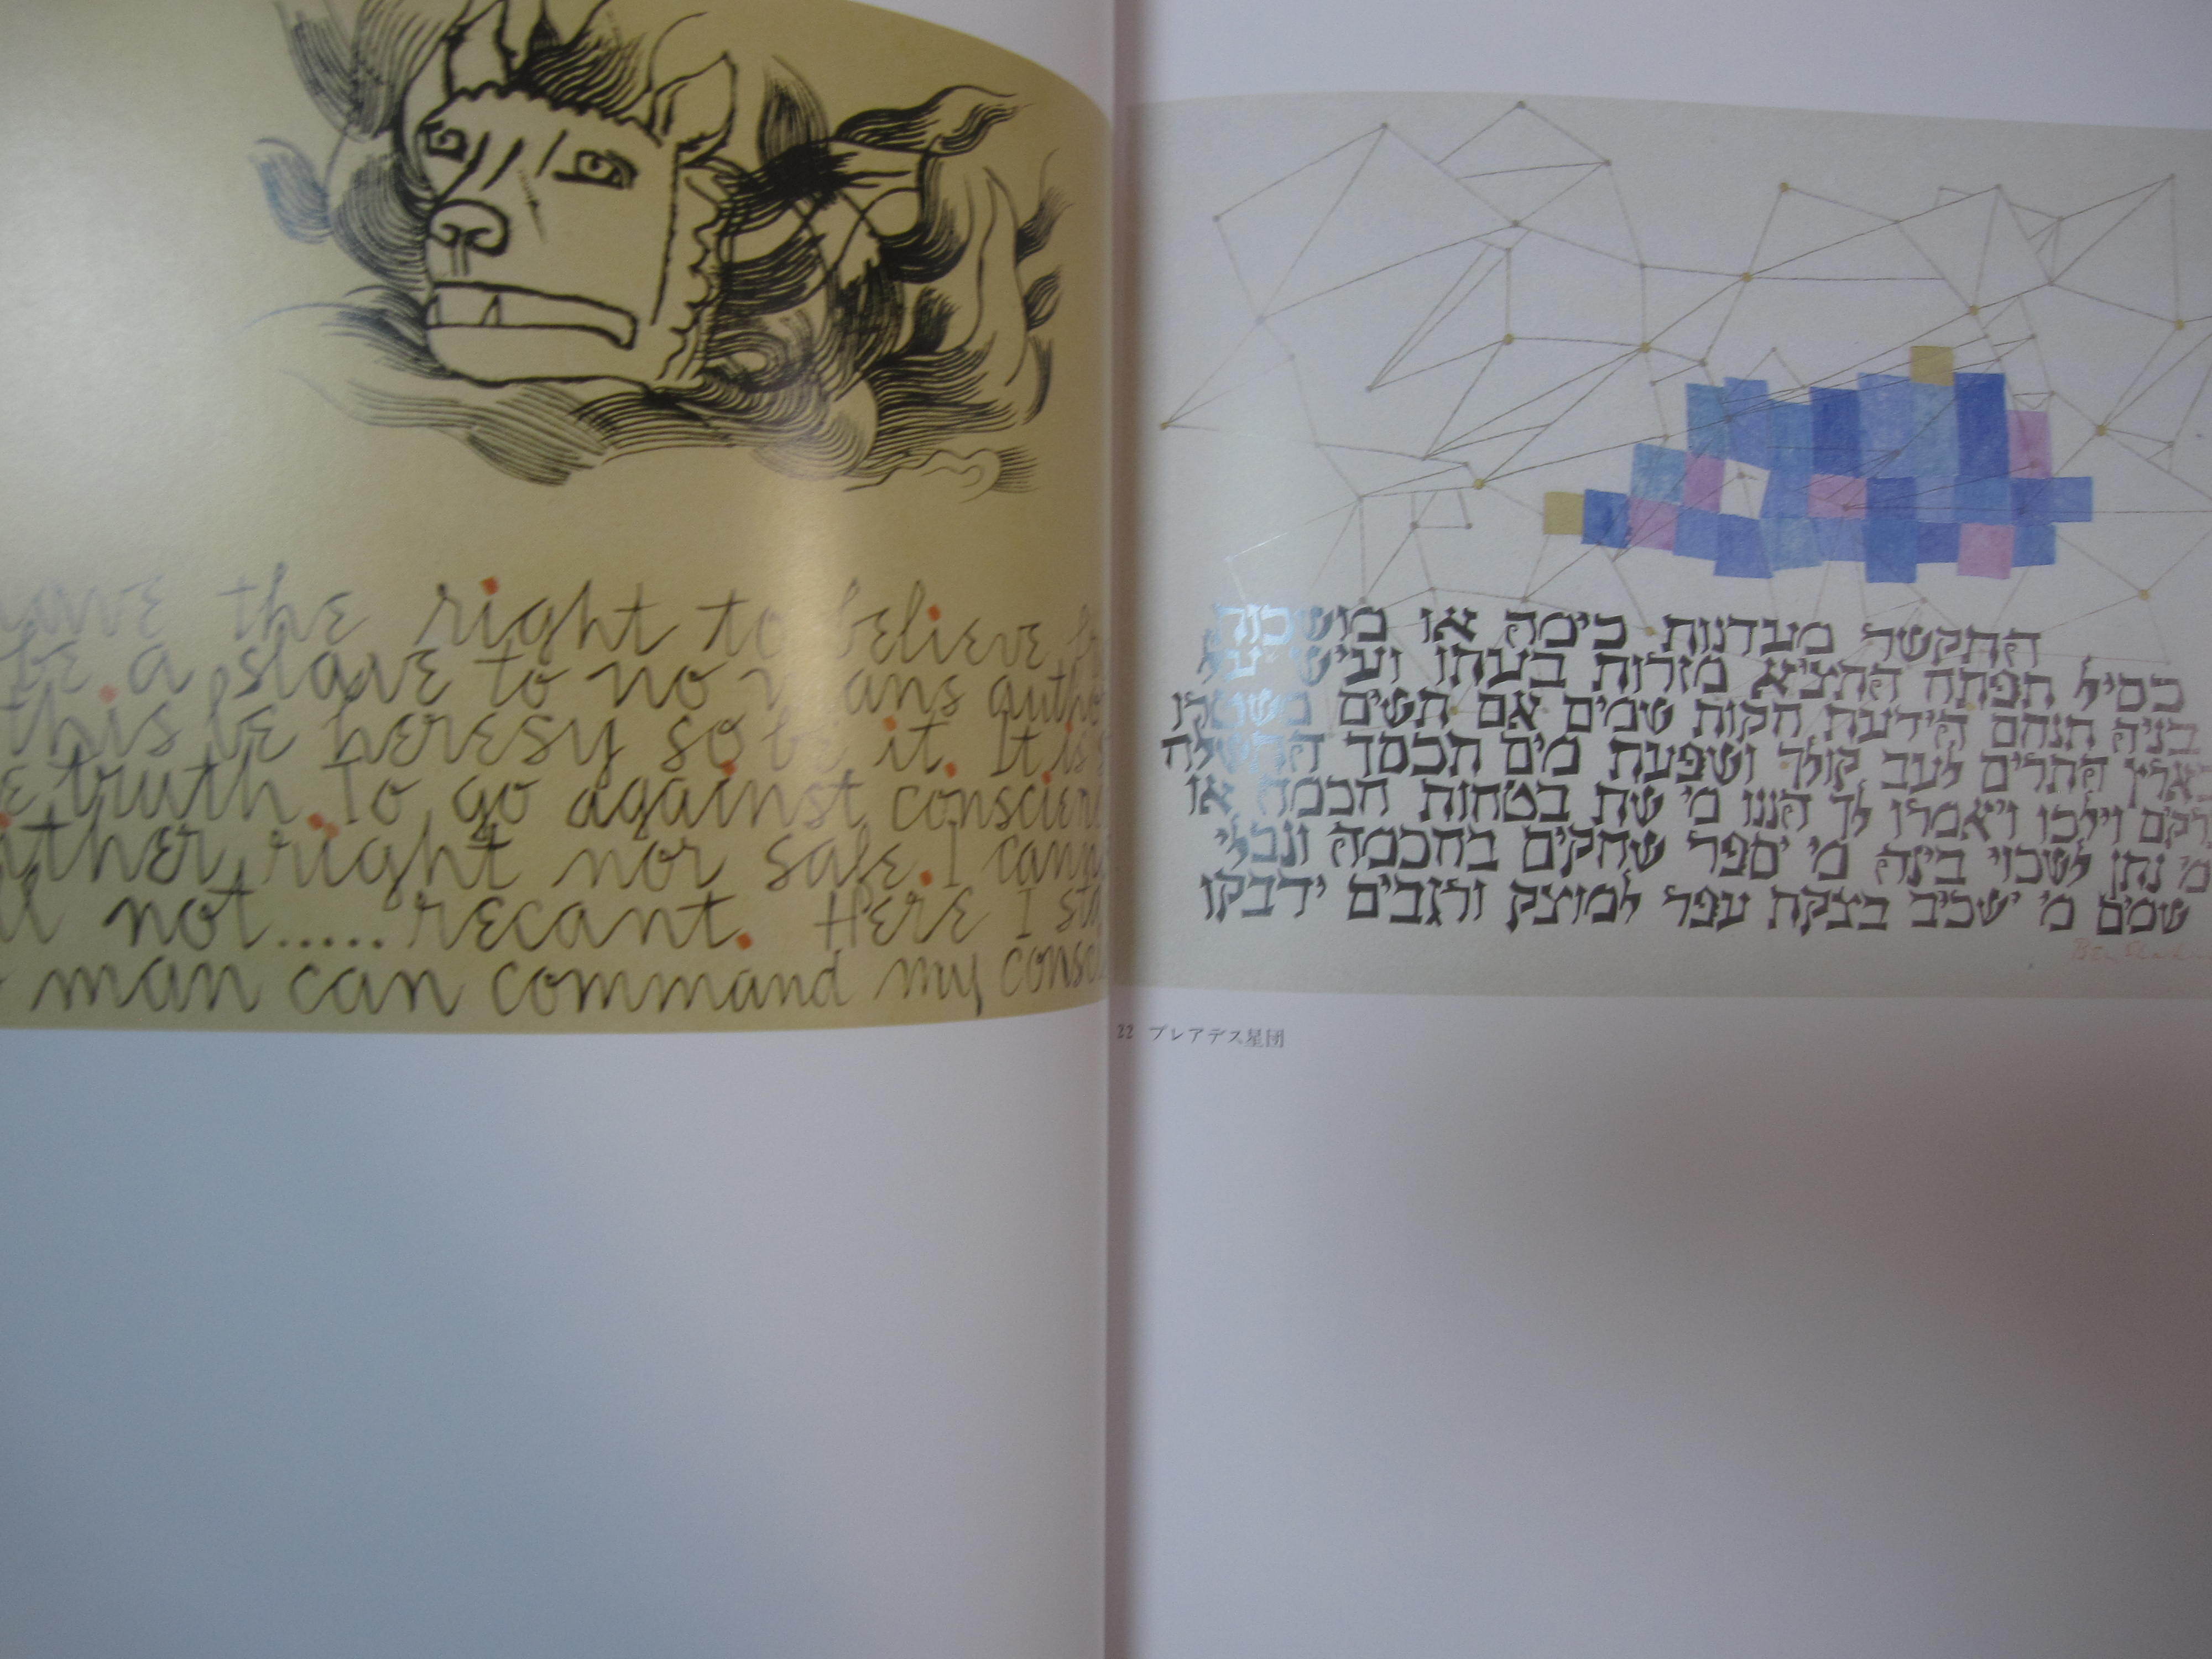 have the right to believe
be a slave to no mans
this be heresy so be it. It is
truth. To go against
right nor safe. I
not.....recant. Here I
man can command my
התקשר מעדנות כימה או
כסיל תפתח התציא מזרות בעתו ועיש
בניה תנחם הידעת חקות שמים אם תשים
התרים לעב קולך ושפעת מים תכסך
וילכו ויאמרו לך הננו מי שת בטחות חכמה או
מי נתן לשכוי בינה מי יספר שחקים בחכמה ונבלי
שמים מי ישכיב בצקת עפר למוצק ורגבים ידבקו
Ben Shahn
22 プレアデス星団